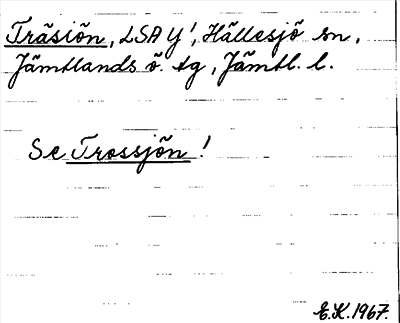 Träsiön, LSA Y!, Hällesjö sn,
Jämtlands ö. tg, Jämtl. l.
Se Trossjön!
E.K. 1967.